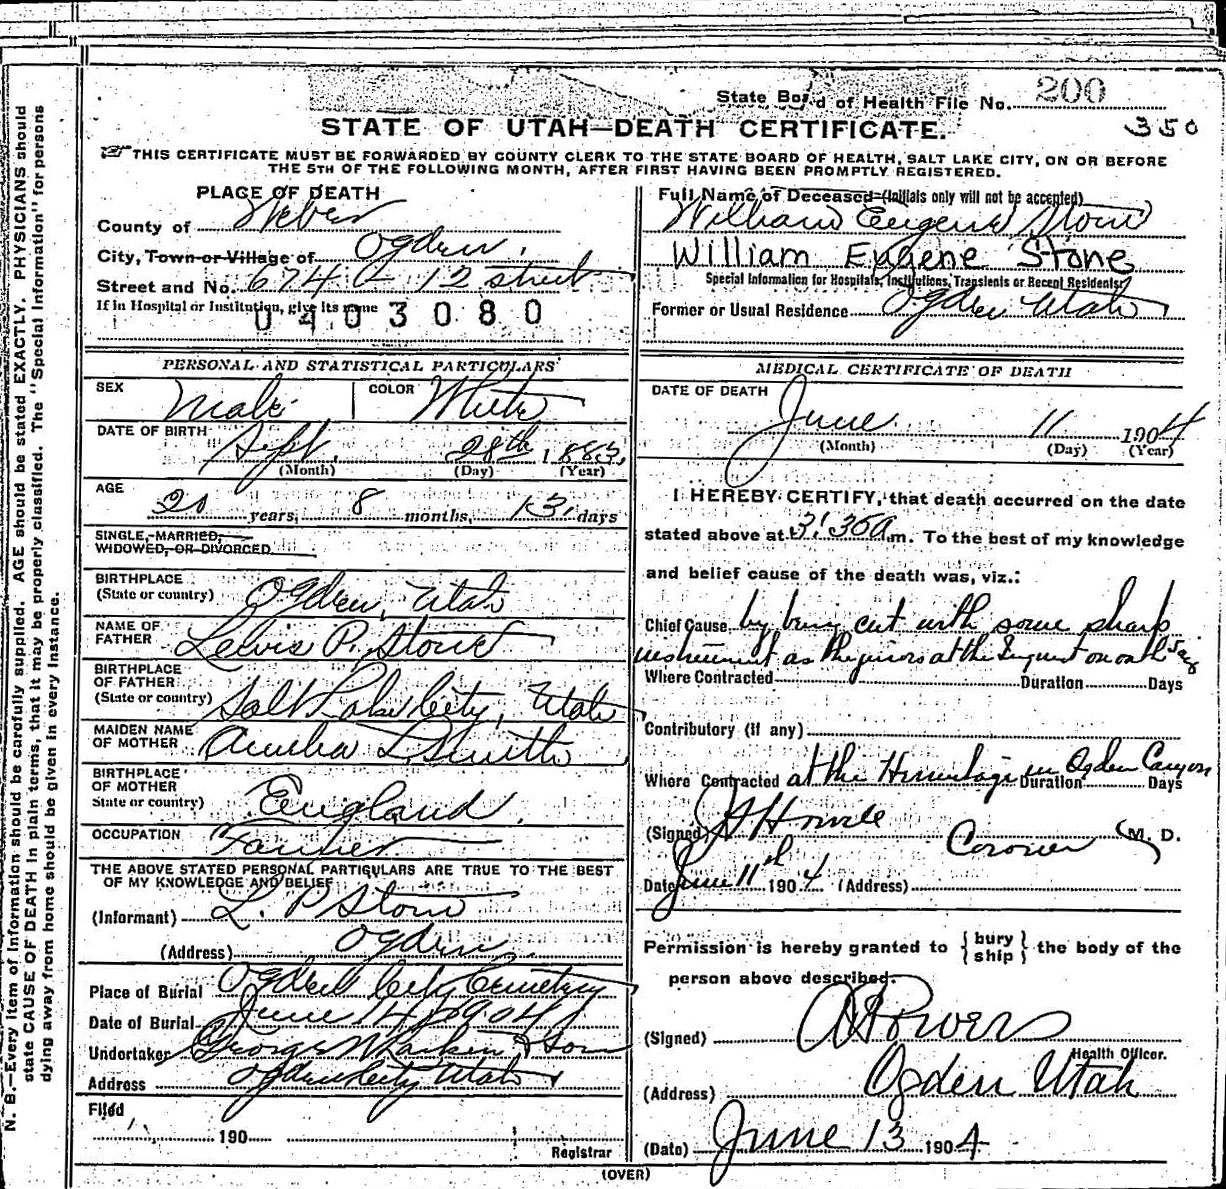 State Board of Health File No. 200
350
STATE OF UTAH—DEATH CERTIFICATE.
THIS CERTIFICATE MUST BE FORWARDED BY COUNTY CLERK TO THE STATE BOARD OF HEALTH, SALT LAKE CITY, ON OR BEFORE
THE 5TH OF THE FOLLOWING MONTH, AFTER FIRST HAVING BEEN PROMPTLY REGISTERED.
N. B.—Every item of information should be carefully supplied. AGE should be stated EXACTLY. PHYSICIANS should
state CAUSE OF DEATH in plain terms, that it may be properly classified. The "Special Information" for persons
dying away from home should be given in every instance.
PLACE OF DEATH
County of Weber
City, Town or Village of Ogden.
Street and No. 674 12 street
If in Hospital or Institution, give its name
0403080
PERSONAL AND STATISTICAL PARTICULARS
SEX Male COLOR White
DATE OF BIRTH Sept. 28th, 1883.
(Month) (Day) (Year)
AGE
20 years, 8 months, 13 days
SINGLE, MARRIED,
WIDOWED, OR DIVORCED
BIRTHPLACE
(State or country) Ogden, Utah
NAME OF
FATHER Lewis P. Stone
BIRTHPLACE
OF FATHER
(State or country) Salt Lake City, Utah
MAIDEN NAME
OF MOTHER Amelia L Smith
BIRTHPLACE
OF MOTHER
State or country) England.
OCCUPATION Farmer
THE ABOVE STATED PERSONAL PARTICULARS ARE TRUE TO THE BEST
OF MY KNOWLEDGE AND BELIEF
(Informant) L. P Stone
(Address) Ogden.
Place of Burial Ogden City Cemetery
Date of Burial June 14, 1904
Undertaker George W Larkin & Son
Address Ogden City Utah
Filed
190
Registrar
Full Name of Deceased (Initials only will not be accepted)
William Eugene Stone
William Eugene Stone
Special Information for Hospitals, Institutions, Transients or Recent Residents
Former or Usual Residence Ogden Utah
MEDICAL CERTIFICATE OF DEATH
DATE OF DEATH
June 11 1904
(Month) (Day) (Year)
I HEREBY CERTIFY, that death occurred on the date
stated above at 3:36 a.m. To the best of my knowledge
and belief cause of the death was, viz.:
Chief Cause by being cut with some sharp
instrument as the jurors at the Inquest on oath say
Where Contracted Duration Days
Contributory (if any)
Where Contracted at the Hermitage in Ogden Canyon Duration Days
(Signed) Coroner (M. D.
Date June 11th 1904 (Address)
Permission is hereby granted to {bury ship} the body of the
person above described.
(Signed) Powers
Health Officer.
(Address) Ogden Utah
(Date) June 13 1904
(OVER)